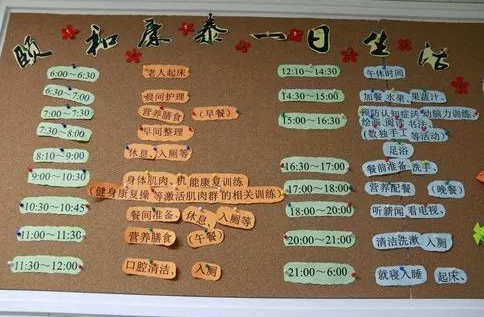 颐和康泰一日生活
6:00～6:30 老人起床
6:30～7:00 晨间护理
7:00～7:30 营养膳食（早餐）
7:30～8:00 早间整理
8:10～9:00 休息、入厕等
9:00～10:30 身体肌肉、机能康复训练
（健身康复操等激活肌肉群的相关训练）
10:30～10:45 餐间准备、休息、入厕等
11:00～11:30 营养膳食（午餐）
11:30～12:00 口腔清洁、入厕
12:10～14:30 午休时间
14:30～15:00 加餐水果、果蔬汁、
15:00～16:30 预防认知症活动脑力训练、
绘画、阅读、书法
（数独手工等活动）
足浴
16:30～17:00 餐前准备、洗手、
17:00～18:00 营养配餐（晚餐）
18:00～20:00 听新闻看电视、
20:00～21:00 清洁洗漱入厕
21:00～6:00 就寝入睡起床、